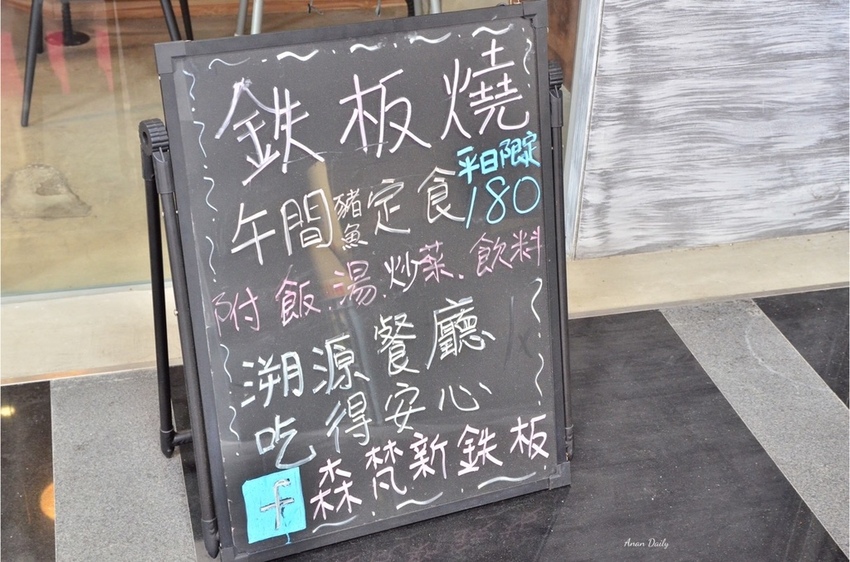 鉄板燒
平日限定
午間豬魚定食180
附飯.湯.炒菜.飲料
溯源餐廳
吃得安心
f森梵新鉄板
Anan Daily